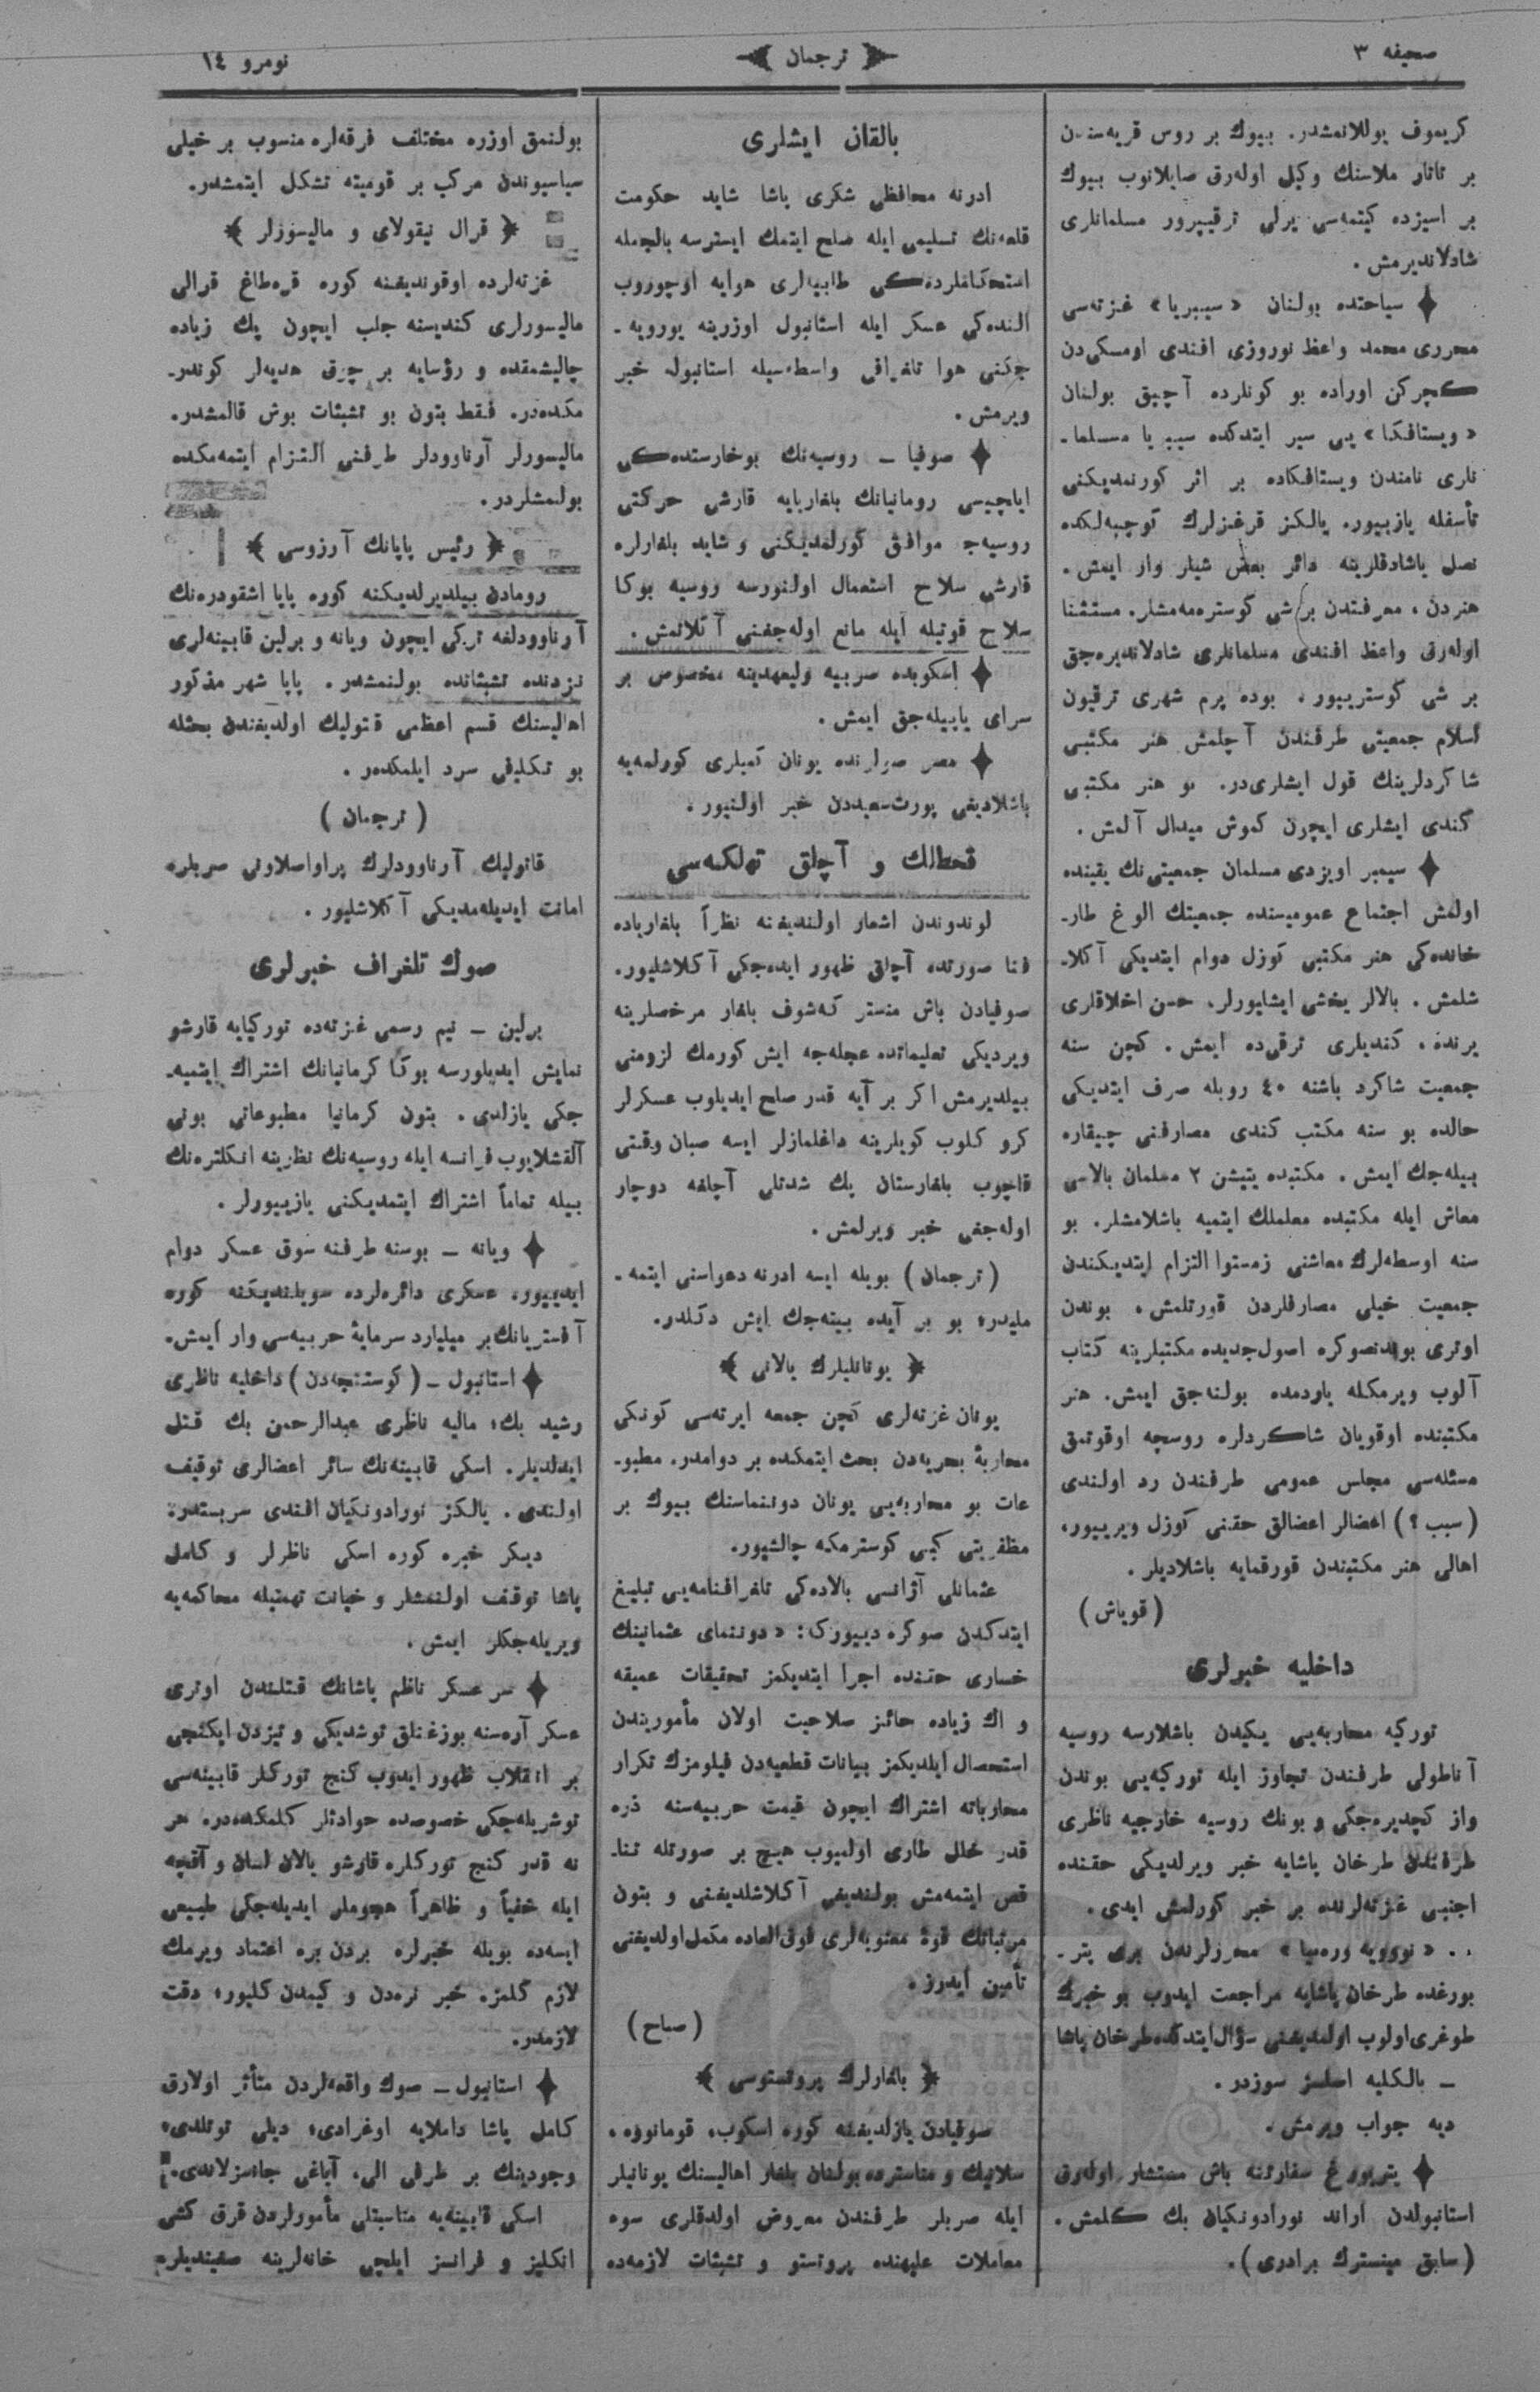 صحیفه ٣
ترجمان
نومرو ١٤
كریموف یوللانمشدر. بیوك بر روس قریه‌سندن
بر تاتار ملاسنك وكیل اوله‌رق صایلانوب بیوك
بر اسیزده كیتمه‌سی یرلی ترقیپرور مسلمانلری
شادلاندیرمش.
سیاحتده بولنان «سیبریا» غزته‌سی
محرری محمد واعظ نوروزی افندی اومسكی‌دن
كچركن اوراده بو كونلرده آچیق بولنان
«ویستافكا» یی سیر ایتدكده سیبریا مسلما-
نلری نامندن ویستافكاده بر اثر كورنمدیكنی
تأسفله یازییور. یالكز قرغزلرك كوچبه‌لكده
نصل یاشادقلرینه دائر بعض شیلر وار ایمش.
هنردن، معرفتدن بر شی كوستره‌مه‌مشلر. مستثنا
اوله‌رق واعظ افندی مسلمانلری شادلاندیره‌جق
بر شی كوسترییور. بوده پرم شهری ترقیون
اسلام جمعیتی طرفندن آچلمش هنر مكتبی
شاكردلرینك قول ایشلری‌در. بو هنر مكتبی
كندی ایشلری ایچون كموش میدال آلمش.
سیمبر اویزدی مسلمان جمعیتی‌نك یقینده
اولمش اجتماع عمومیسنده جمعیتك الوغ طار-
خانده‌كی هنر مكتبی كوزل دوام ایتدیكی آكلا-
شلمش. بالالر یخشی ایشلیورلر، حسن اخلاقلری
یرنده، كندیلری ترقی‌ده ایمش. كچن سنه
جمعیت شاكرد باشنه ٤٠ روبله صرف ایتدیكی
حالده بو سنه مكتب كندی مصارفنی چیقاره
بیله‌جك ایمش. مكتبده یتیشن ٢ مسلمان بالاسی
معاش ایله مكتبده معلملك ایتمیه باشلامشلر. بو
سنه اوسطه‌لرك معاشنی زمستوا التزام ایتدیكندن
جمعیت خیلی مصارفلردن قورتلمش، بوندن
اوتری بوندنصوكره اصول جدیده مكتبلرینه كتاب
آلوب ویرمكله یاردمده بولنه‌جق ایمش. هنر
مكتبنده اوقویان شاكردلره روسچه اوقوتمق
مسئله‌سی مجلس عمومی طرفندن رد اولندی
(سبب ؟) اعضالر اعضالق حقنی كوزل ویرییور،
اهالی هنر مكتبندن قورقمایه باشلادیلر.
(قویاش)
داخلیه خبرلری
توركیه محاربه‌یی یكیدن باشلارسه روسیه
آناطولی طرفندن تجاوز ایله توركیه‌یی بوندن
واز كچدیره‌جكی و بونك روسیه خارجیه ناظری
طرفندن طرخان پاشایه خبر ویرلدیكی حقنده
اجنبی غزته‌لرنده بر خبر كورلمش ایدی.
«نوویه وره‌میا» محررلرندن بری پتر-
بورغده طرخان پاشایه مراجعت ایدوب بو خبرك
طوغری اولوب اولمدیغنی سؤال ایتدكده طرخان پاشا
– بالكلیه اصلسز سوزدر.
دیه جواب ویرمش.
پتربورغ سفارتنه باش مستشار اوله‌رق
استانبولدن آراند نورادونكیان بك كلمش.
(سابق مینسترك برادری).
بالقان ایشلری
ادرنه محافظی شكری پاشا شاید حكومت
قلعه‌نك تسلیمی ایله صلح ایتمك ایسترسه بالجمله
استحكاملرده‌كی طابیه‌لری هوایه اوچوروب
النده‌كی عسكر ایله استانبول اوزرینه یورویه-
جكنی هوا تلغرافی واسطه‌سیله استانبوله خبر
ویرمش.
صوفیا – روسیه‌نك بوخارستده‌كی
ایلچیسی رومانیانك بلغاریایه قارشی حركتی
روسیه‌جه موافق كورلمدیكنی و شاید بلغارلره
قارشی سلاح استعمال اولنورسه روسیه بوكا
سلاح قوتیله ایله مانع اوله‌جغنی آكلاتمش.
اسكوبده صربیه ولیعهدینه مخصوص بر
سرای یاپیله‌جق ایمش.
مصر صولرنده یونان كمیلری كورلمه‌یه
باشلادیغی پورت‌سعیددن خبر اولنیور.
قحطلك و آچلق تهلكه‌سی
لوندوندن اشعار اولندیغنه نظراً بلغاریاده
فنا صورتده آچلق ظهور ایده‌جكی آكلاشلیور.
صوفیادن باش منستر كه‌شوف بلغار مرخصلرینه
ویردیكی تعلیماتده عجله‌جه ایش كورمك لزومنی
بیلدیرمش اكر بر آیه قدر صلح ایدیلوب عسكرلر
كرو كلوب كویلرینه داغلمازلر ایسه صبان وقتی
قاچوب بلغارستان پك شدتلی آچلغه دوچار
اوله‌جغی خبر ویرلمش.
(ترجمان) بویله ایسه ادرنه دعواسنی ایتمه-
ملیدر؛ بو بر آیده بیته‌جك ایش دكلدر.
یونانلیلرك یالانی
یونان غزته‌لری كچن جمعه ایرته‌سی كونكی
محاربهٔ بحریه‌دن بحث ایتمكده بر دوامدر. مطبو-
عات بو محاربه‌یی یونان دوننماسنك بیوك بر
مظفریتی كبی كوسترمكه چالشیور.
عثمانلی آژانسی بالاده‌كی تلغرافنامه‌یی تبلیغ
ایتدكدن صوكره دییورك: «دوننمای عثمانینك
خساری حقنده اجرا ایتدیكمز تحقیقات عمیقه
و اك زیاده حائز صلاحیت اولان مأموریندن
استحصال ایلدیكمز بیانات قطعیه‌دن فیلومزك تكرار
محارباته اشتراك ایچون قیمت حربیه‌سنه ذره
قدر خلل طاری اولمیوب هیچ بر صورتله تنا-
قص ایتمه‌مش بولندیغی آكلاشلدیغنی و بتون
مرتباتك قوهٔ معنویه‌لری فوق‌العاده مكمل اولدیغنی
تأمین ایدرز.
(صباح)
بلغارلرك پروتستوسی
صوفیادن یازلدیغنه كوره اسكوب، قومانووه،
سلانیك و مناسترده بولنان بلغار اهالیسنك یونانیلر
ایله صربلر طرفندن معروض اولدقلری سوء
معاملات علیهنده پروتستو و تشبثات لازمه‌ده
بولنمق اوزره مختلف فرقه‌لره منسوب بر خیلی
سیاسیوندن مركب بر قومیته تشكل ایتمشدر.
قرال نیقولای و مالیسورلر
غزته‌لرده اوقوندیغنه كوره قره‌طاغ قرالی
مالیسورلری كندیسنه جلب ایچون پك زیاده
چالیشمقده و رؤسایه بر چوق هدیه‌لر كوندر-
مكده‌در. فقط بتون بو تشبثات بوش قالمشدر.
مالیسورلر آرناوودلر طرفنی التزام ایتمه‌مكده
بولنمشلردر.
رئیس پاپانك آرزوسی
رومادن بیلدیرلدیكنه كوره پاپا اشقودره‌نك
آرناوودلغه تركی ایچون ویانه و برلین قابینه‌لری
نزدنده تشبثاتده بولنمشدر. پاپا شهر مذكور
اهالیسنك قسم اعظمی قتولیك اولدیغندن بحثله
بو تكلیفی سرد ایلمكده‌در.
(ترجمان)
قاتولیك آرناوودلرك پراواصلاونی صربلره
امانت ایدیله‌مدیكی آكلاشلیور.
صوك تلغراف خبرلری
برلین – نیم رسمی غزته‌ده توركیایه قارشو
نمایش ایدیلورسه بوكا كرمانیانك اشتراك ایتمیه-
جكی یازلدی. بتون كرمانیا مطبوعاتی بونی
آلقشلایوب فرانسه ایله روسیه‌نك نظرینه انكلتره‌نك
بیله تماماً اشتراك ایتمدیكنی یازییورلر.
ویانه – بوسنه طرفنه سوق عسكر دوام
ایدییور، عسكری دائره‌لرده سویلندیكنه كوره
آفستریانك بر میلیارد سرمایهٔ حربیه‌سی وار ایمش.
استانبول – (كوستنجه‌دن) داخلیه ناظری
رشید بك، مالیه ناظری عبدالرحمن بك قتل
ایدلدیلر. اسكی قابینه‌نك سائر اعضالری توقیف
اولندی. یالكز نورادونكیان افندی سربستدر.
دیكر خبره كوره اسكی ناظرلر و كامل
پاشا توقیف اولنمشلر و خیانت تهمتیله محاكمه‌یه
ویریله‌جكلر ایمش.
سر عسكر ناظم پاشانك قتلندن اوتری
عسكر آره‌سنه بوزغنلق توشدیكی و تیزدن ایكنجی
بر انقلاب ظهور ایدوب كنج توركلر قابینه‌سی
توشریله‌جكی خصوصده حوادثلر كلمكده‌در. هر
نه قدر كنج توركلره قارشو یالان لسان و آقچه
ایله خفیاً و ظاهراً هجوملر ایدیله‌جكی طبیعی
ایسه‌ده بویله خبرلره بردن بره اعتماد ویرمك
لازم كلمز. خبر نره‌دن و كیمدن كلیور؛ دقت
لازمدر.
استانبول – صوك واقعه‌لردن متأثر اولارق
كامل پاشا داملایه اوغرادی، دیلی توتلدی،
وجودینك بر طرفی الی، آیاغی جانسزلاندی.
اسكی قابینه‌یه مناسبتلی مأمورلردن قرق كشی
انكلیز و فرانسز ایلچی خانه‌لرینه صغیندیلر.